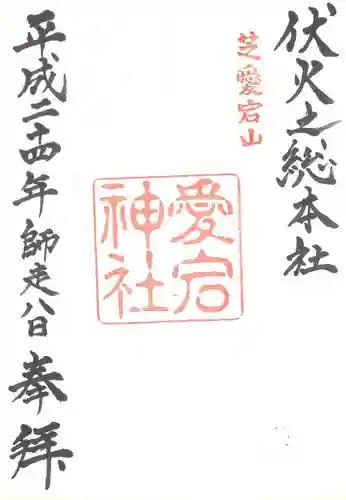 伏火之総本社
芝愛宕山
愛宕
神社
平成二十四年師走八日
奉拝